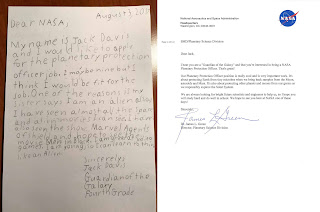 August 3, 2017
Dear NASA,
My name is Jack Davis
and I would like to apply
for the planetary protection
officer job. I may be nine but I
think I would be fit for the
job. One of the reasons is my
sister says I am an alien also
I have seen almost all the space
and alien movies I can see. I have
also seen the show Marvel Agents
of Shield and hope to see the
movie Men in Black. I am great at vidieo
games. I am young, so I can learn to think
like an Alien.
Sincerely,
Jack Davis
Guardian of the
Galaxy
Fourth Grade
National Aeronautics and Space Administration
NASA
Planetary Science Division
Dear Jack,
I hear you are a "Guardian of the Galaxy" and that you're interested in being a NASA
Planetary Protection Officer. That's great!
Our Planetary Protection Officer position is really cool and is very important work. It's
about protecting Earth from tiny microbes when we bring back samples from the Moon,
asteroids and Mars. It's also about protecting other planets and moons from our germs as
we responsibly explore the Solar System.
We are always looking for bright future scientists and engineers to help us, so I hope you
will study hard and do well in school. We hope to see you here at NASA one of these
days!
Sincerely,
James L. Green
Dr. James L. Green
Director, Planetary Science Division